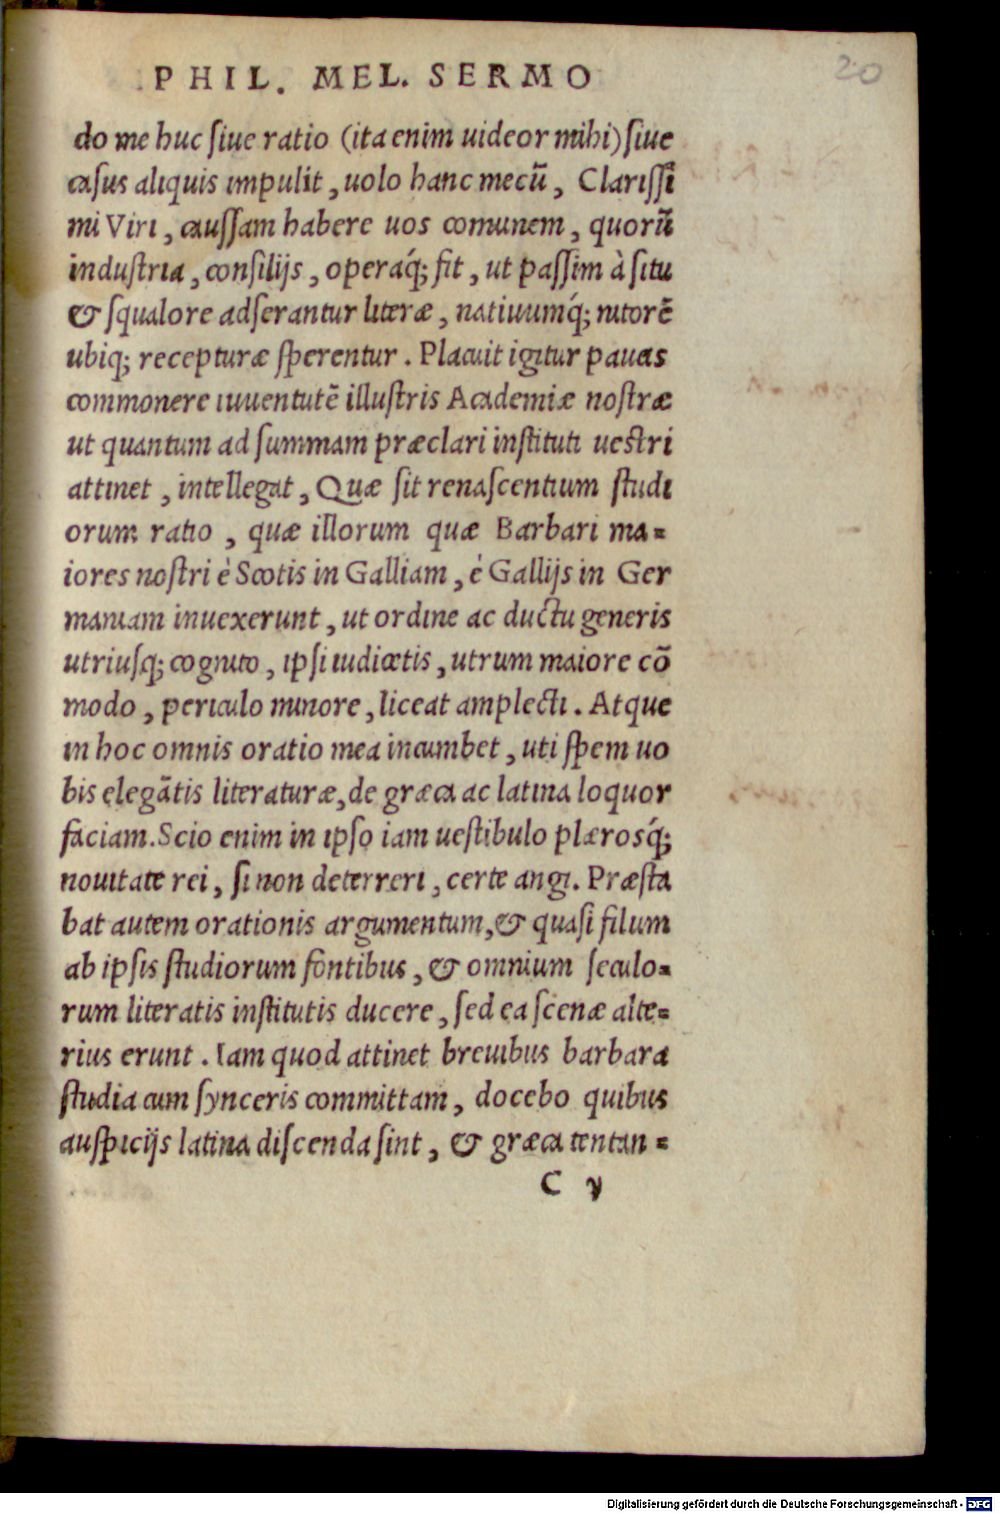 20
PHIL. MEL. SERMO
do me huc ſiue ratio (ita enim uideor mihi) ſiue
caſus aliquis impulit, uolo hanc mecũ, Clariſſi
mi Viri, cauſſam habere uos comunem, quorũ
induſtria, conſilijs, operaq́; fit, ut paſſim à ſitu
& ſqualore adſerantur literæ, natiuumq́; nitorẽ
ubiq; recepturæ ſperentur. Placuit igitur paucis
commonere iuuentutẽ illuſtris Academiæ noſtræ
ut quantum ad ſummam præclari inſtituti ueſtri
attinet, intellegat, Quæ ſit renaſcentium ſtudi
orum ratio, quæ illorum quæ Barbari ma=
iores noſtri è Scotis in Galliam, è Gallijs in Ger
maniam inuexerunt, ut ordine ac ductu generis
utriusq; cognito, ipſi iudicetis, utrum maiore cõ
modo, periculo minore, liceat amplecti. Atque
in hoc omnis oratio mea incumbet, uti ſpem uo
bis elegãtis literaturæ, de græca ac latina loquor
faciam. Scio enim in ipſo iam ueſtibulo plæroſq́;
nouitate rei, ſi non deterreri, certe angi. Præſta
bat autem orationis argumentum, & quaſi filum
ab ipſis ſtudiorum fontibus, & omnium ſeculo=
rum literatis inſtitutis ducere, ſed ea ſcenæ alte=
rius erunt. Iam quod attinet breuibus barbara
ſtudia cum ſynceris committam, docebo quibus
auſpicijs latina diſcenda ſint, & græca tentan=
C v
Digitalisierung gefördert durch die Deutsche Forschungsgemeinschaft - DFG